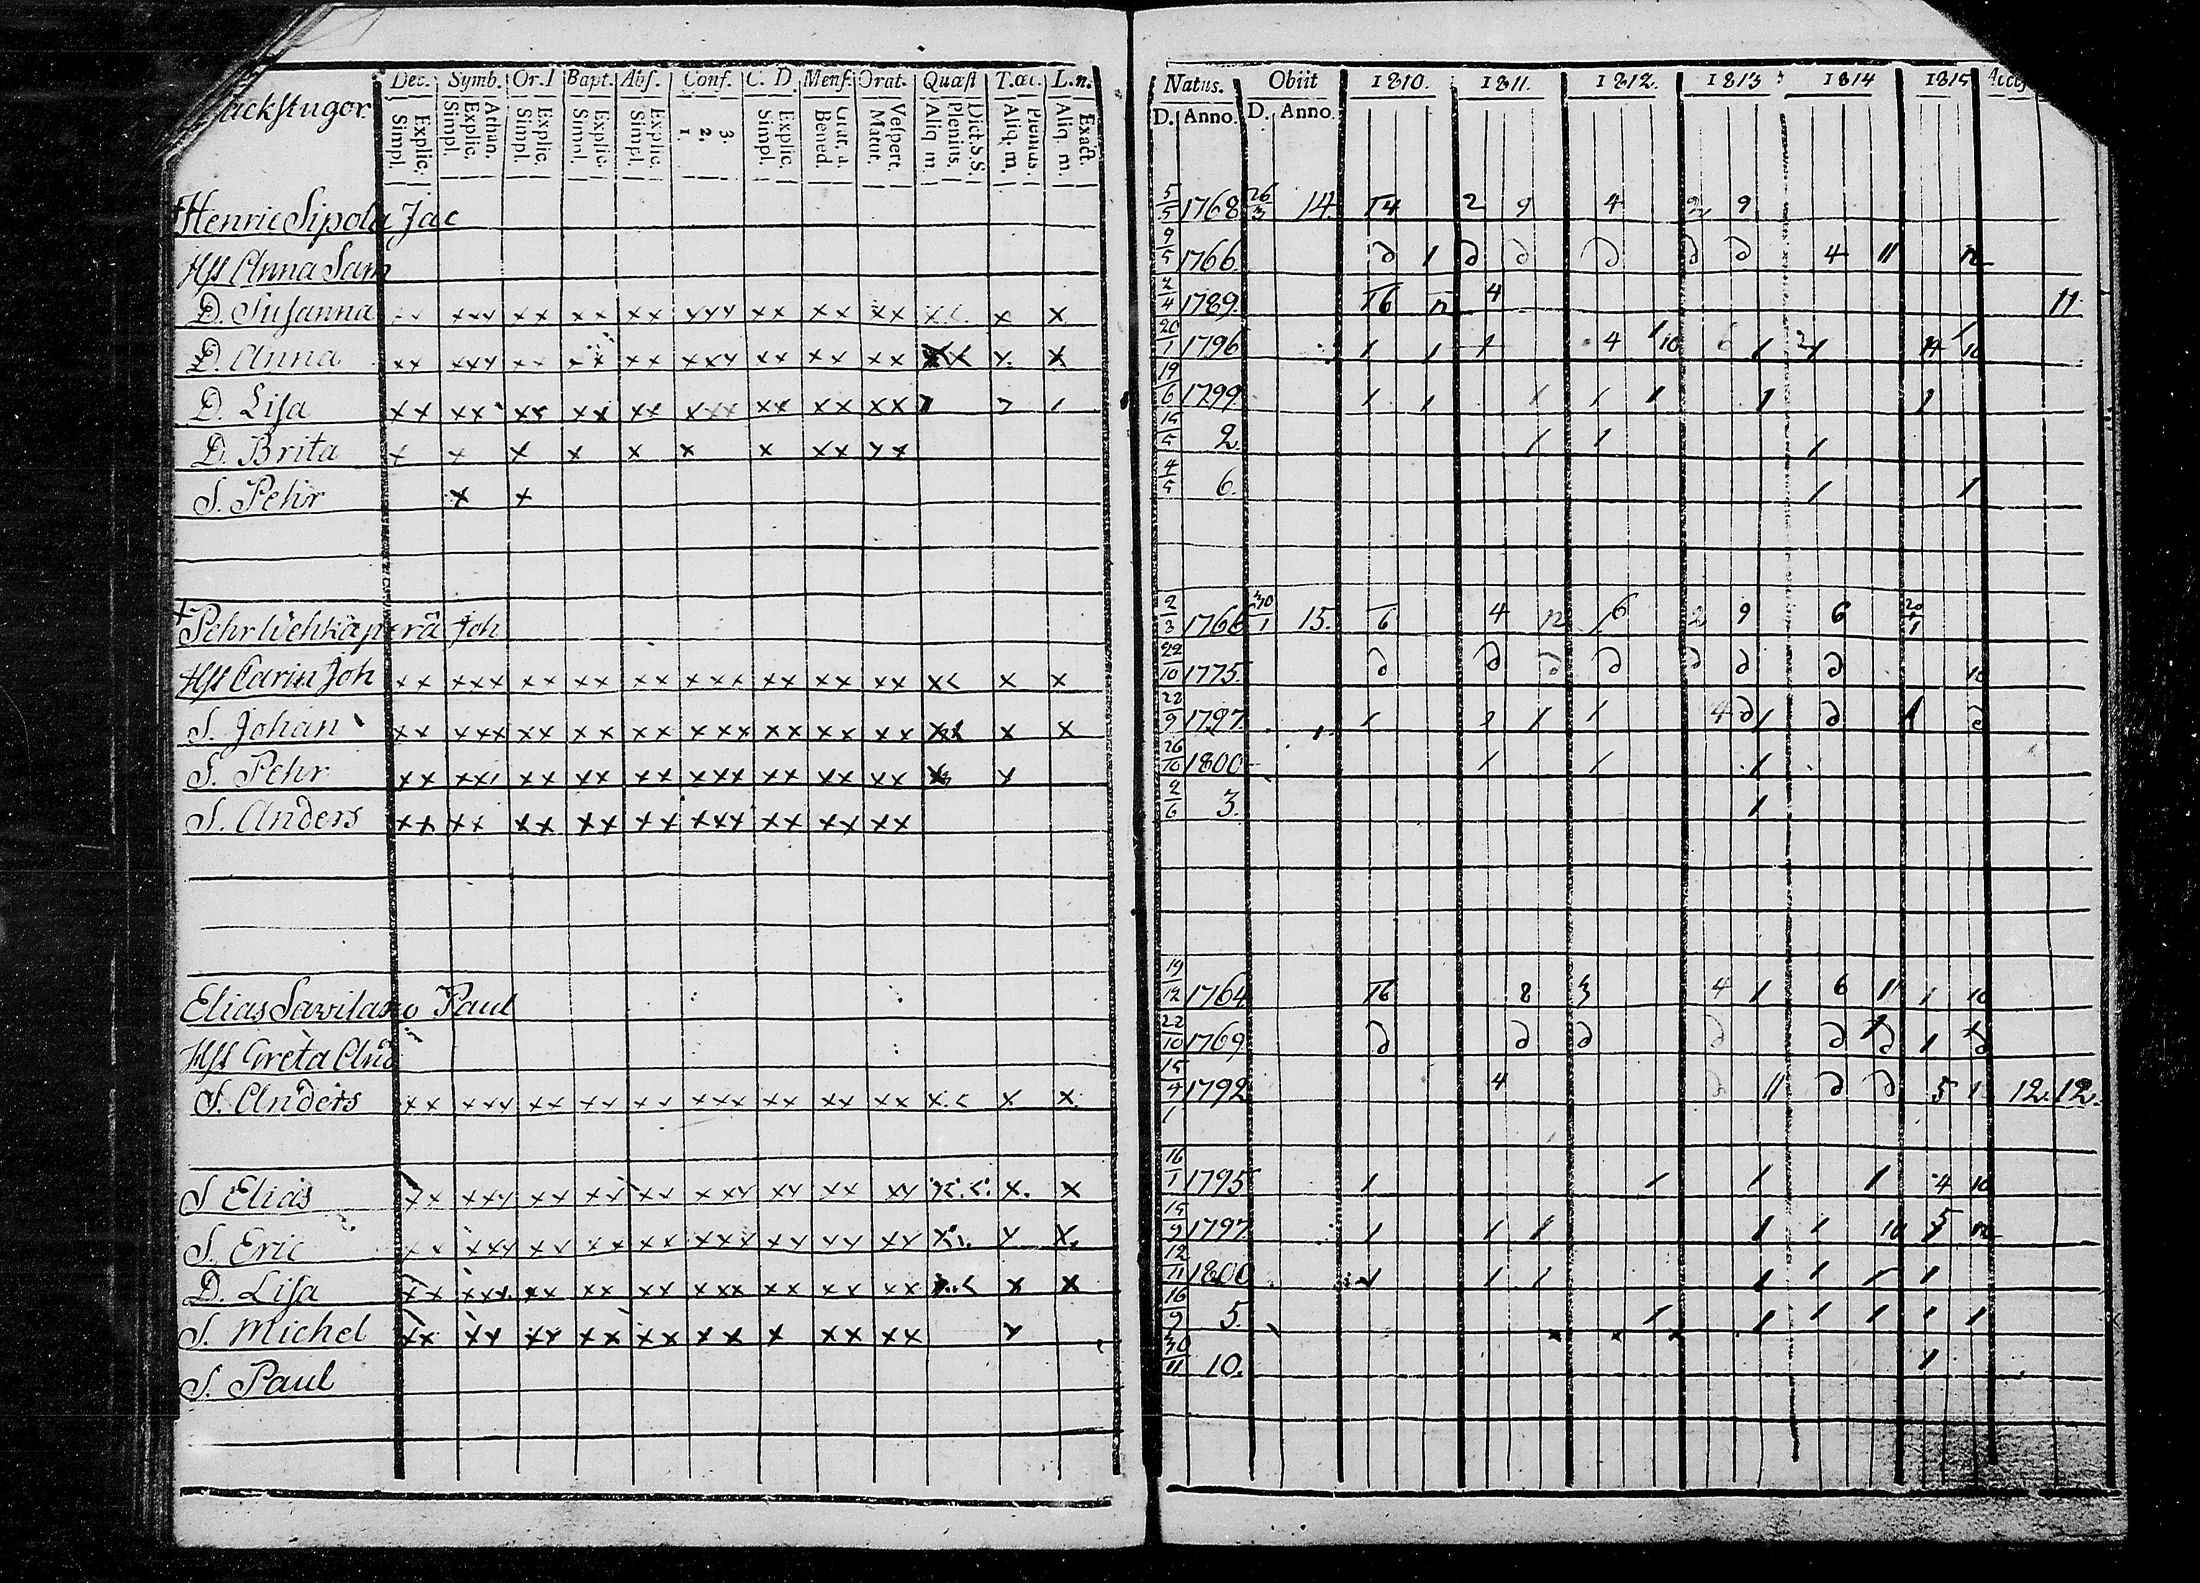 Dec. Symb. Or. I Bapt. Abs. Conf. C. D. Mens. Orat. Quæst T.œc. L.n.
Backstugor.
Explic. Simpl. Athan. Explic. Simpl. Explic. Simpl. Explic. Simpl. Explic. Simpl. 3. 2. 1. Explic. Simpl. Grat. a. Bened. Vespert. Matut. Dict.S.S. Plenius. Aliq m Plenius. Aliq. m. Exact. Aliq. m.
Natus. Obiit 1810. 1811. 1812. 1813 1814 1815
D. Anno. D. Anno.
†Henric Sipola Jac 5/5 1768 26/3 14 14 2 9 4 2 9
Hst Anna Sam 9/5 1766. ∂ 1 ∂ ∂ ∂ ∂ ∂ 4 11 12
D. Susanna xx xxx xx xx xx xxx xx xx xx x< x x 2/4 1789. 16 12 4 11
D. Anna xx xxx xx xx xx xxx xx xx xx x< x. x 20/1 1796 1 1 1 4 1/10 6 1 2 1 4 1/10
D. Lisa xx xx xx xx xx xxx xx xx xx 1 7 1 19/6 1799 1 1 1 1 1 1 1
D. Brita x x x x x x x xx xx 15/5 2 1 1 1
S. Pehr x x 4/5 6. 1 1
†Pehr Wehkaperä Joh 2/3 1766 30/1 15. 6 4 12 6 2 9 6 20/1
Hst Carin Joh xx xxx xx xx xx xxx xx xx xx x< x x 22/10 1775. ∂ ∂ ∂ ∂ ∂ ∂ ∂ 10
S. Johan xx xxx xx xx xx xxx xx xx xx x< x x 22/9 1797. 1 1 1 1 4 ∂ 1 ∂ 1 ∂
S. Pehr xx xxx xx xx xx xxx xx xx xx x x 26/10 1800 1 1 1
S. Anders xx xx xx xx xx xxx xx xx xx 2/6 3. 1
Elias Sawilaxo Paul 19/12 1764 16 8 3 4 1 6 11 1 10
Hst Greta And 22/10 1769 ∂ ∂ ∂ ∂ ∂ 1 ∂ 1 ∂
S. Anders xx xxx xx xx xx xxx xx xx xx x.< x x. 15/4 1792 4 ∂ 11 ∂ ∂ 5 1 12. 12.
S Elias xx xxx xx xx xx xxx xx xx xx x.<. x. x 16/1 1795 1 1 1 1 4 10
S. Eric xx xxx xx xx xx xxx xx xx xx x. x x. 15/9 1797 1 1 1 1 1 10 5 12
D. Lisa xx xxx xx xx xx xxx xx xx xx x.< x x 12/11 1800 1 1 1 1 1 1 1
S. Michel xx xx xx xx xx xx x xx xx x 16/9 5. 1 1 1 1 1 1
S. Paul 30/11 10. 1